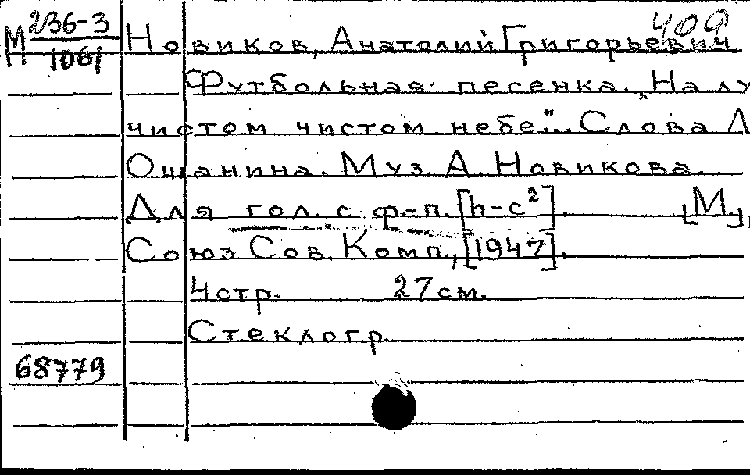 М 236-3
1061
409
Новиков, Анатолий Григорьевич
Футбольная песенка. „На лу
чистом чистом небе"... Слова Л
Ошанина. Муз. А. Новикова.
Для гол. с ф-п. [h-c²]. [М.],
Союз Сов. Комп., [1947].
4 стр. 27 см.
Стеклогр.
68779